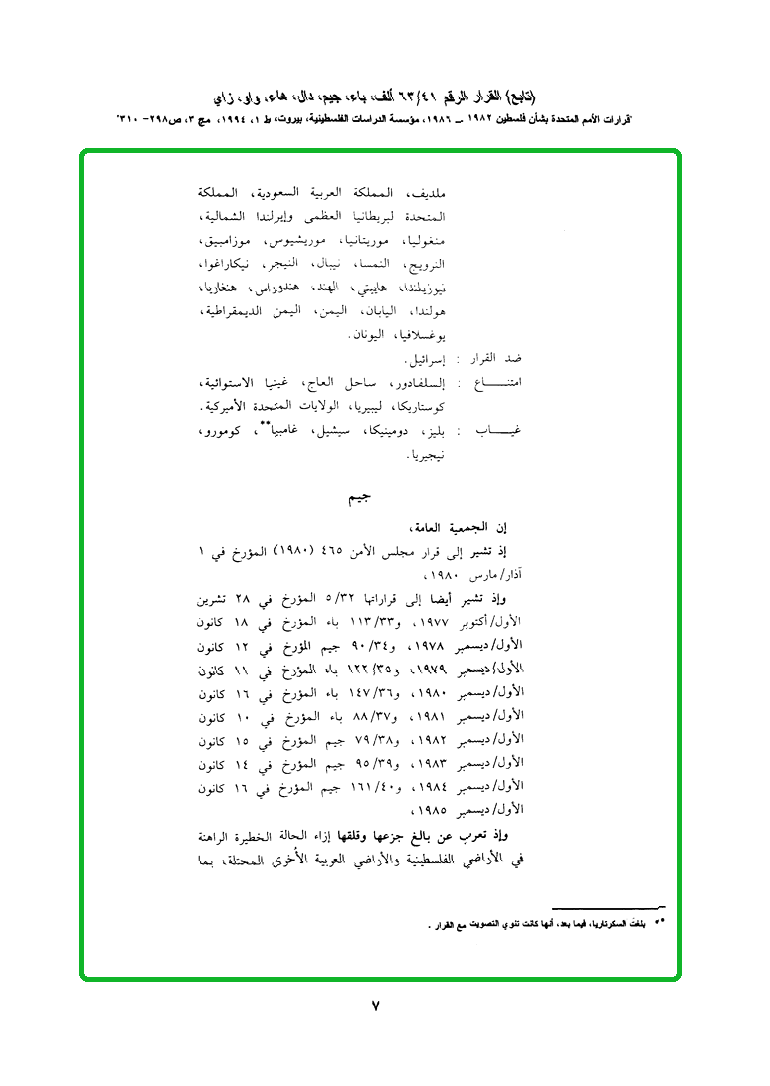 (تابع) القرار الرقم ٦٣/٤١ ألف، باء، جيم، دال، هاء، واو، زاي
"قرارات الأمم المتحدة بشأن فلسطين ١٩٨٢ – ١٩٨٦، مؤسسة الدراسات الفلسطينية، بيروت، ط ١، ١٩٩٤، مج ٣، ص ٢٩٨– ٣١٠"
ملديف، المملكة العربية السعودية، المملكة
المتحدة لبريطانيا العظمى وإيرلندا الشمالية،
منغوليا، موريتانيا، موريشيوس، موزامبيق،
النرويج، النمسا، نيبال، النيجر، نيكاراغوا،
نيوزيلندا، هاييتي، الهند، هندوراس، هنغاريا،
هولندا، اليابان، اليمن، اليمن الديمقراطية،
يوغسلافيا، اليونان.
ضد القرار : إسرائيل.
امتنـــاع : إلسلفادور، ساحل العاج، غينيا الاستوائية،
كوستاريكا، ليبيريا، الولايات المتحدة الأميركية.
غيـــاب : بليز، دومينيكا، سيشيل، غامبيا**، كومورو،
نيجيريا.
جيم
إن الجمعية العامة،
إذ تشير إلى قرار مجلس الأمن ٤٦٥ (١٩٨٠) المؤرخ في ١
آذار/مارس ١٩٨٠،
وإذ تشير أيضا إلى قراراتها ٥/٣٢ المؤرخ في ٢٨ تشرين
الأول/أكتوبر ١٩٧٧، و١١٣/٣٣ باء المؤرخ في ١٨ كانون
الأول/ديسمبر ١٩٧٨، و٩٠/٣٤ جيم المؤرخ في ١٢ كانون
الأول/ديسمبر ١٩٧٩، و١٢٢/٣٥ باء المؤرخ في ١١ كانون
الأول/ديسمبر ١٩٨٠، و١٤٧/٣٦ باء المؤرخ في ١٦ كانون
الأول/ديسمبر ١٩٨١، و٨٨/٣٧ باء المؤرخ في ١٠ كانون
الأول/ديسمبر ١٩٨٢، و٧٩/٣٨ جيم المؤرخ في ١٥ كانون
الأول/ديسمبر ١٩٨٣، و٩٥/٣٩ جيم المؤرخ في ١٤ كانون
الأول/ديسمبر ١٩٨٤، و١٦١/٤٠ جيم المؤرخ في ١٦ كانون
الأول/ديسمبر ١٩٨٥،
وإذ تعرب عن بالغ جزعها وقلقها إزاء الحالة الخطيرة الراهنة
في الأراضي الفلسطينية والأراضي العربية الأخرى المحتلة، بما
** بلغت السكرتاريا، فيما بعد، أنها كانت تنوي التصويت مع القرار.
٧